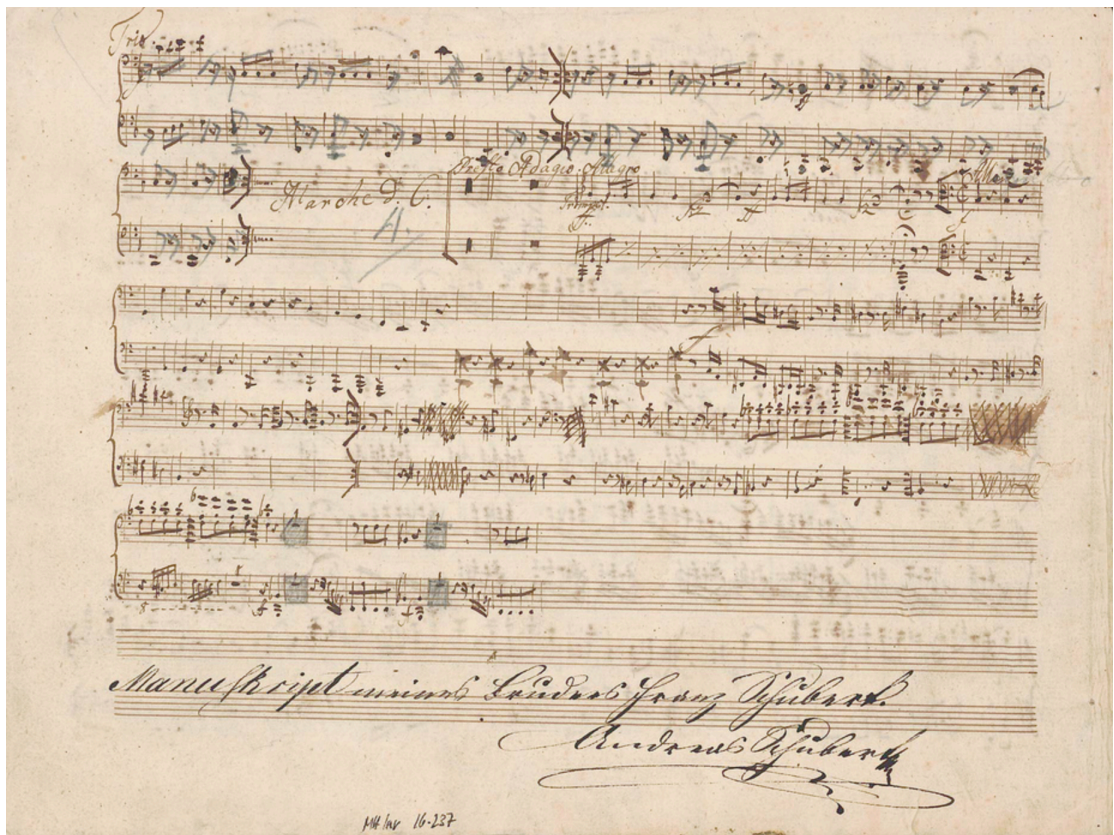 Trio.
Presto Adagio. Allegro
Marche d. C.
Manuskript meines Bruders Franz Schubert.
Andreas Schubert
MH Inv 16.237